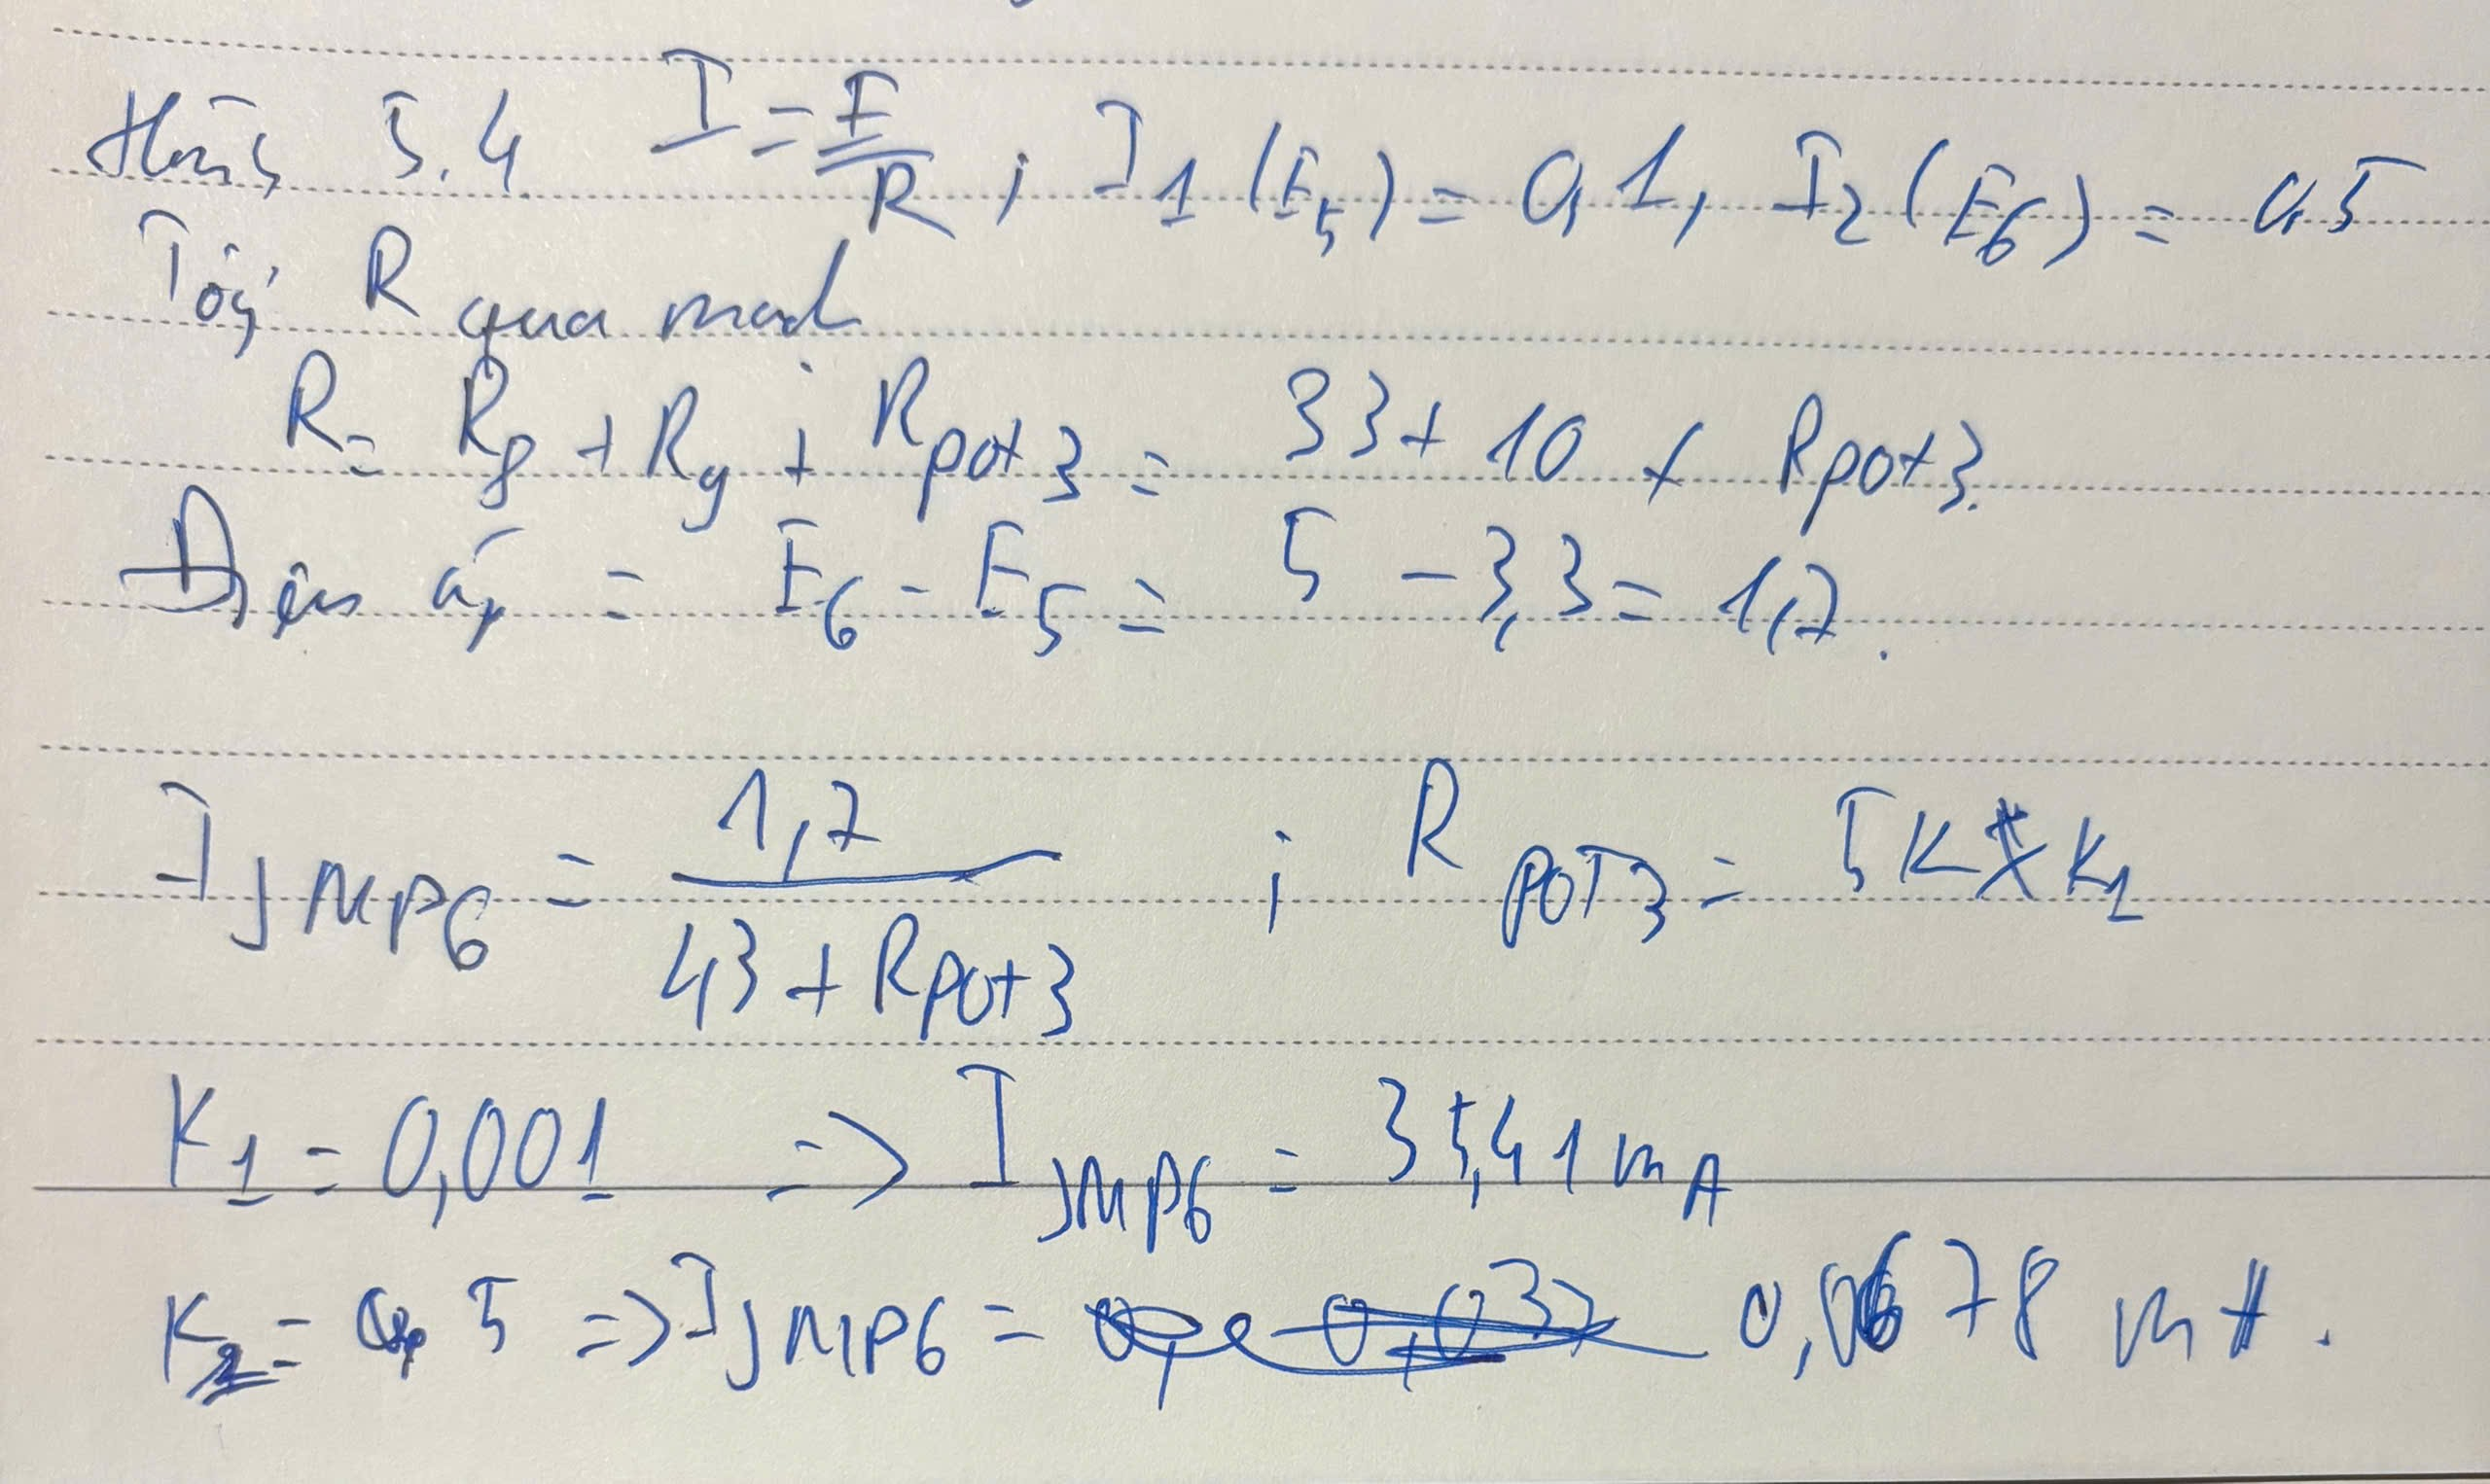 Hình 5.4 I = E/R ; I1 (E5) = 0,1, I2 (E6) = 0,5
R qua mạch
R = R8 + R9 + Rpot3 = 33 + 10 + Rpot3.
Điện áp = E6 - E5 = 5 - 3,3 = 1,7.
I JMP6 = 1,7 / 43 + Rpot3 ; R POT3 = 5K * K1
K1 = 0,001 => I JMP6 = 35,41 mA
K2 = 5 => I JMP6 = 0,0678 mA.